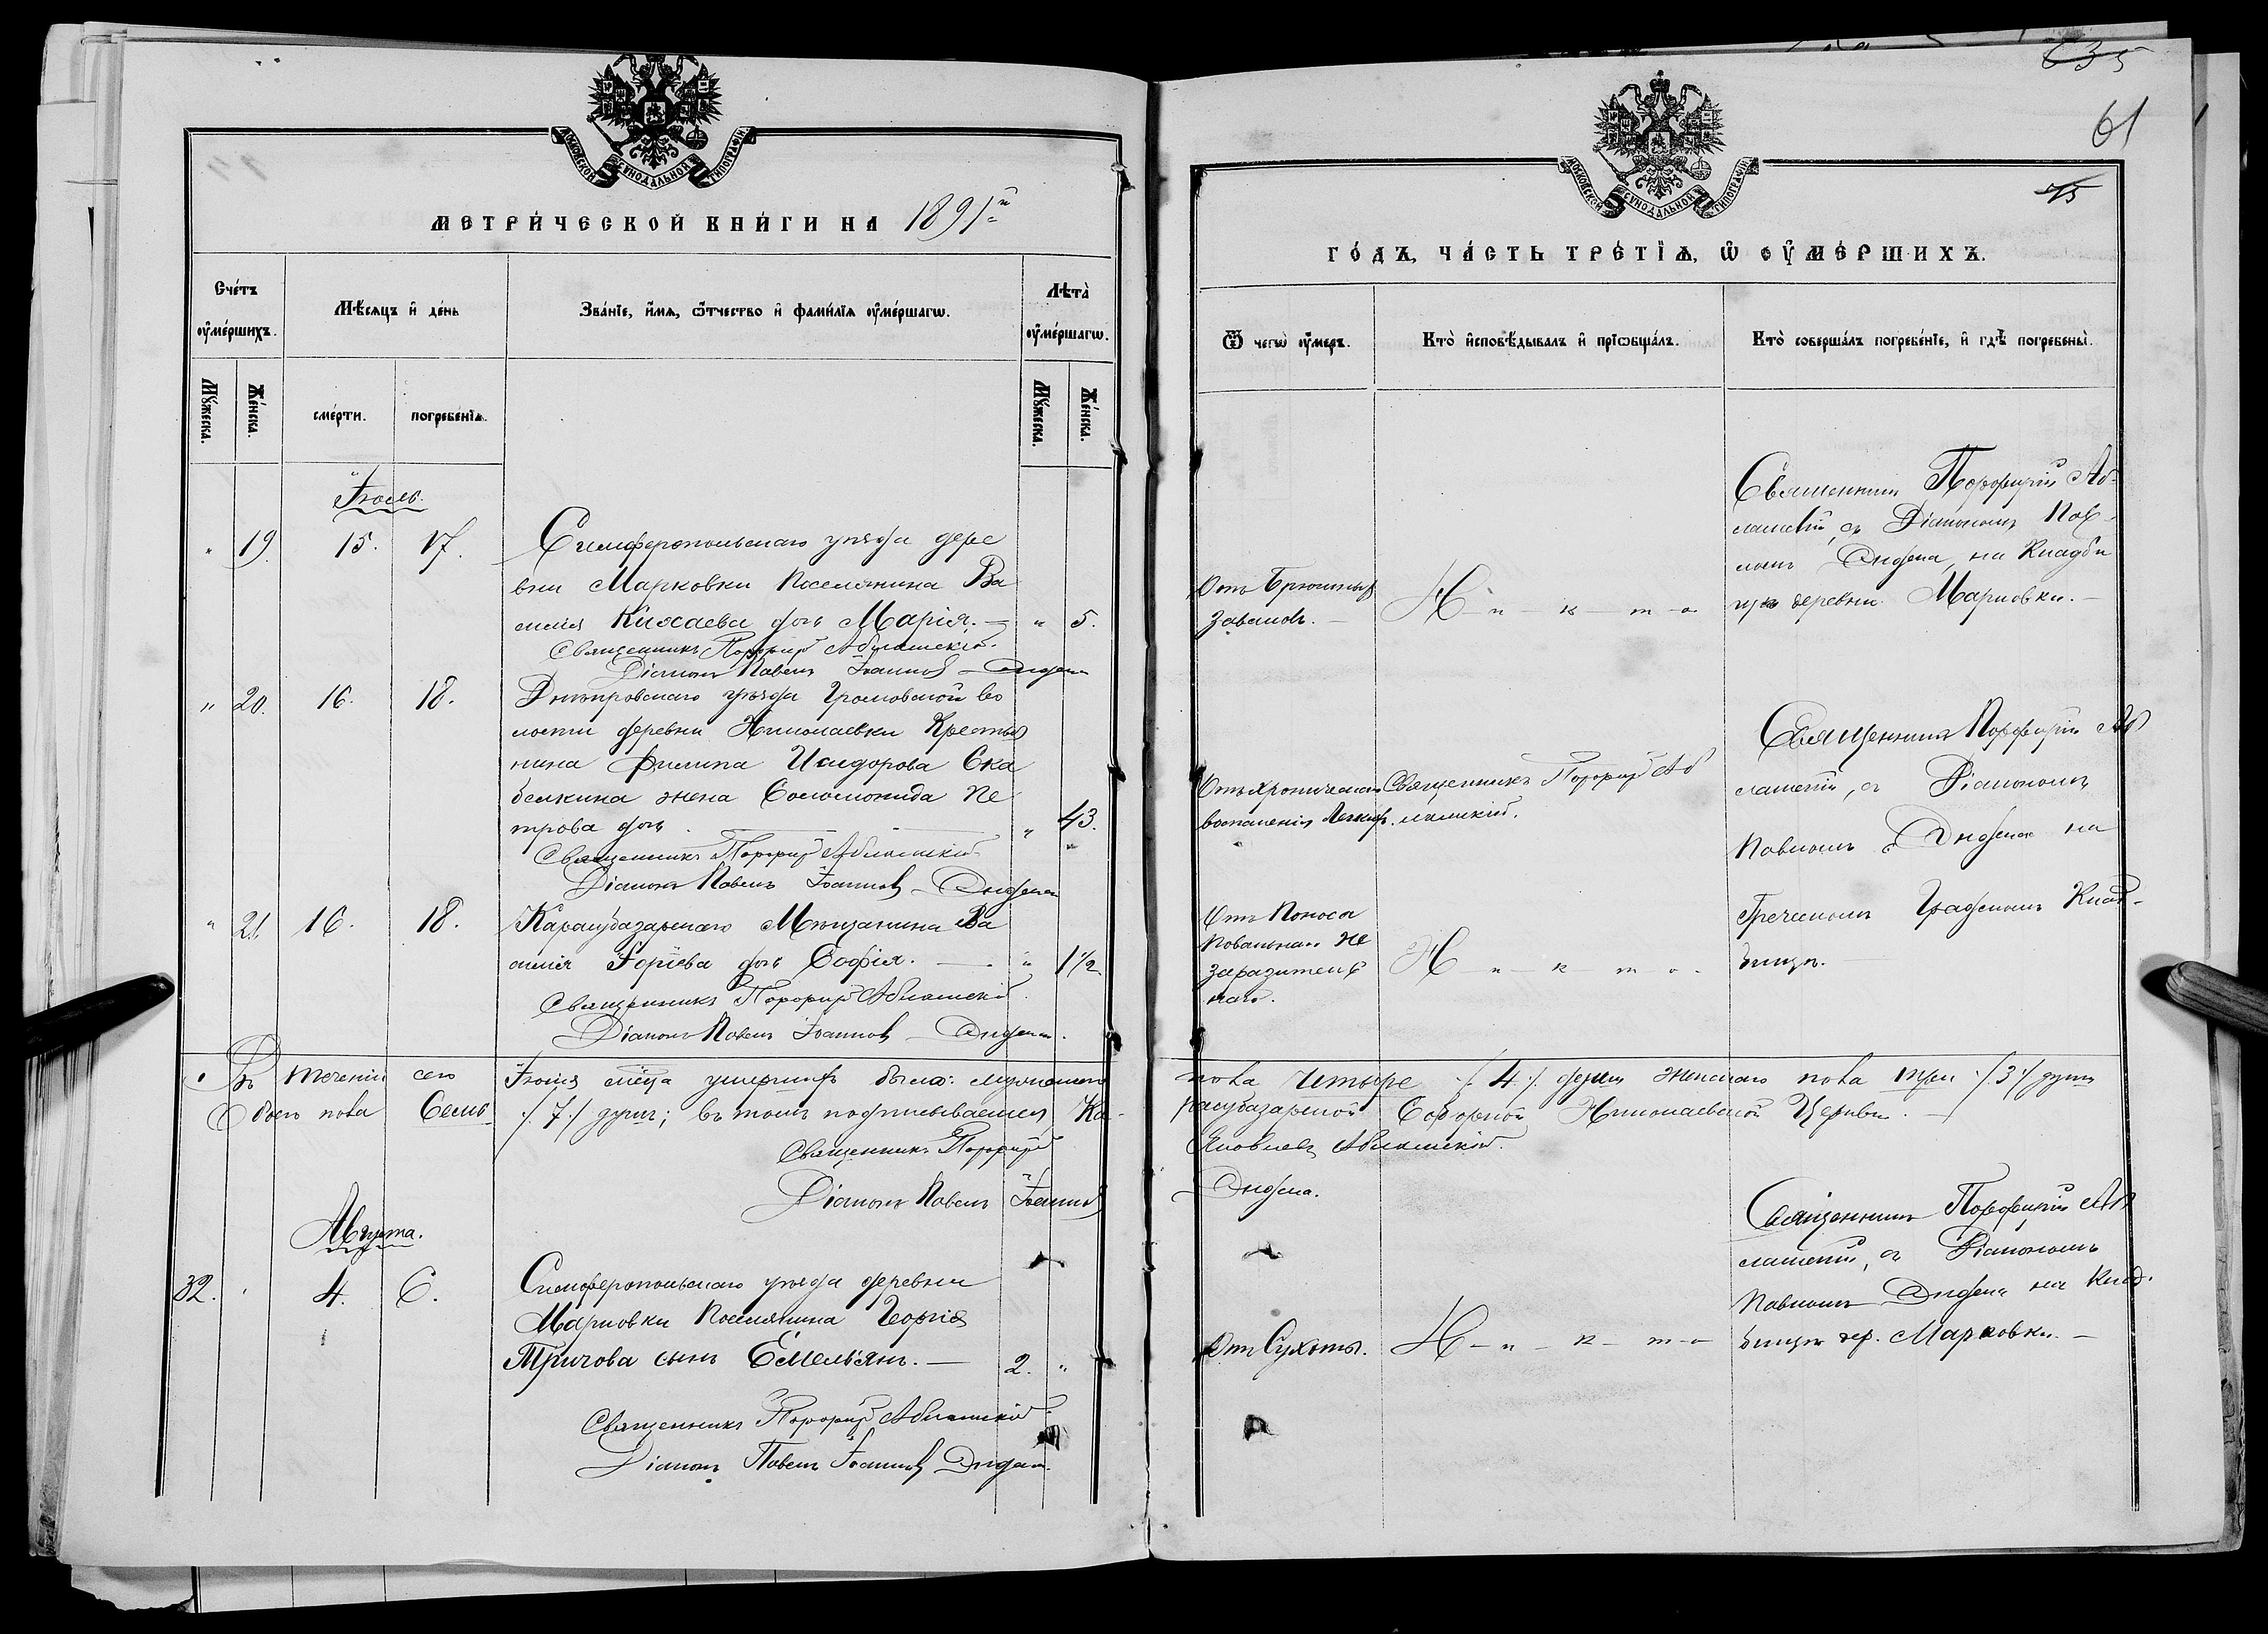 635
61
75
МОСКОВСКОЙ СѴНОДАЛЬНОЙ ТИПОГРАФІИ
МЕТРИ́ЧЕСКОЙ КНИ́ГИ НА 1891й
Сче́тъ ᲂу҆ме́ршихъ.
Мꙋ́жеска.
Же́нска.
Мѣ́сяцъ и҆ де́нь
сме́рти.
погребе́нїѧ.
Зва́нїе, и҆́мѧ, ѻ҆́тчество и҆ фами́лїѧ ᲂу҆ме́ршагѡ.
Лѣ́та ᲂу҆ме́ршагѡ.
Мꙋ́жеска.
Же́нска.
Іюль.
" 19. 15. 17. Симферопольскаго уѣзда дере
вни Марковки Поселянина Ва
силія Кихаева дочь Марія. — " 5.
Священникъ Порфирій Аблашскій.
Діаконъ Павелъ Іоанновъ
" 20. 16. 18. Днѣпровскаго уѣзда Громовской во
лости деревни Николаевки Крестья
нина Филипа Исидорова Ска
белкина жена Соломонида Пе
трова дочь " 43.
Священникъ Порфирій Аблашскій
Діаконъ Павелъ Іоанновъ
" 21. 16. 18. Карасубазарскаго Мѣщанина Ва
силія Горіева дочь Софія. — " 1 1/2
Священникъ Порфирій Аблашскій.
Діаконъ Павелъ Іоанновъ
Въ теченіи сего Іюля мѣсяца умершихъ было: мужескаго
Обоего пола Семь ./7./ душъ; въ томъ подписываемся Ка-
Священникъ Порфирій
Діаконъ Павелъ Іоанновъ
Августа.
32. 4. 6. Симферопольскаго уѣзда деревни
Марковки Поселянина Георгія
Тричова сынъ Емельянъ. — 2. "
Священникъ Порфирій Аблашскій
Діаконъ Павелъ Іоанновъ
МОСКОВСКОЙ СѴНОДАЛЬНОЙ ТИПОГРАФІИ
ГО́ДЪ, ЧА́СТЬ ТРЕ́ТЇѦ, Ѡ҆ ᲂУ҆МЕ́РШИХЪ.
Ѿ чегѡ̀ ᲂу҆́меръ.
Кто̀ и҆сповѣ́дывалъ и҆ прїѡбща́лъ.
Кто̀ соверша́лъ погребе́нїе, и҆ гдѣ̀ погребены̀.
Отъ Брюшныхъ
заваловъ. —
Н - и - к - т - о
Священникъ Порфирій Аб-
лашскій, съ Діакономъ Пав-
ломъ на Кладби
щѣ деревни Марковки. —
Отъ хроническаго
воспаленія Легкихъ.
Священникъ Порфирій Аб
лашскій.
Священникъ Порфирій Аб
лашскій, съ Діакономъ
Павломъ на
Греческомъ Градскомъ Клад-
бищѣ.
Отъ Поноса
Повальнаго не
заразитель
наго.
Н - и - к - т - о.
пола четыре ./4./ души женскаго пола три ./3./ души
расубазарской Соборной Николаевской Церкви. —
Яковлевъ Аблашскій.
Отъ Сухоты.
Н - и - к - т - о
Священникъ Порфирій Аб
лашскій, съ Діакономъ
Павломъ на Клад-
бищѣ дер. Марковки. —